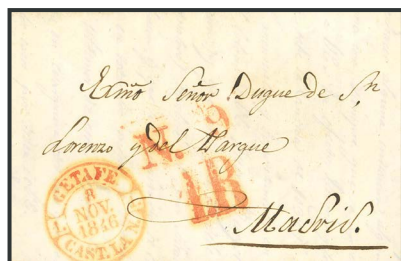 Exmo Señor Duque de Sn
Lorenzo y del Parque
N. 9
1R
GETAFE
8
NOV.
1846
1. CAST. LA N.
Madrid.